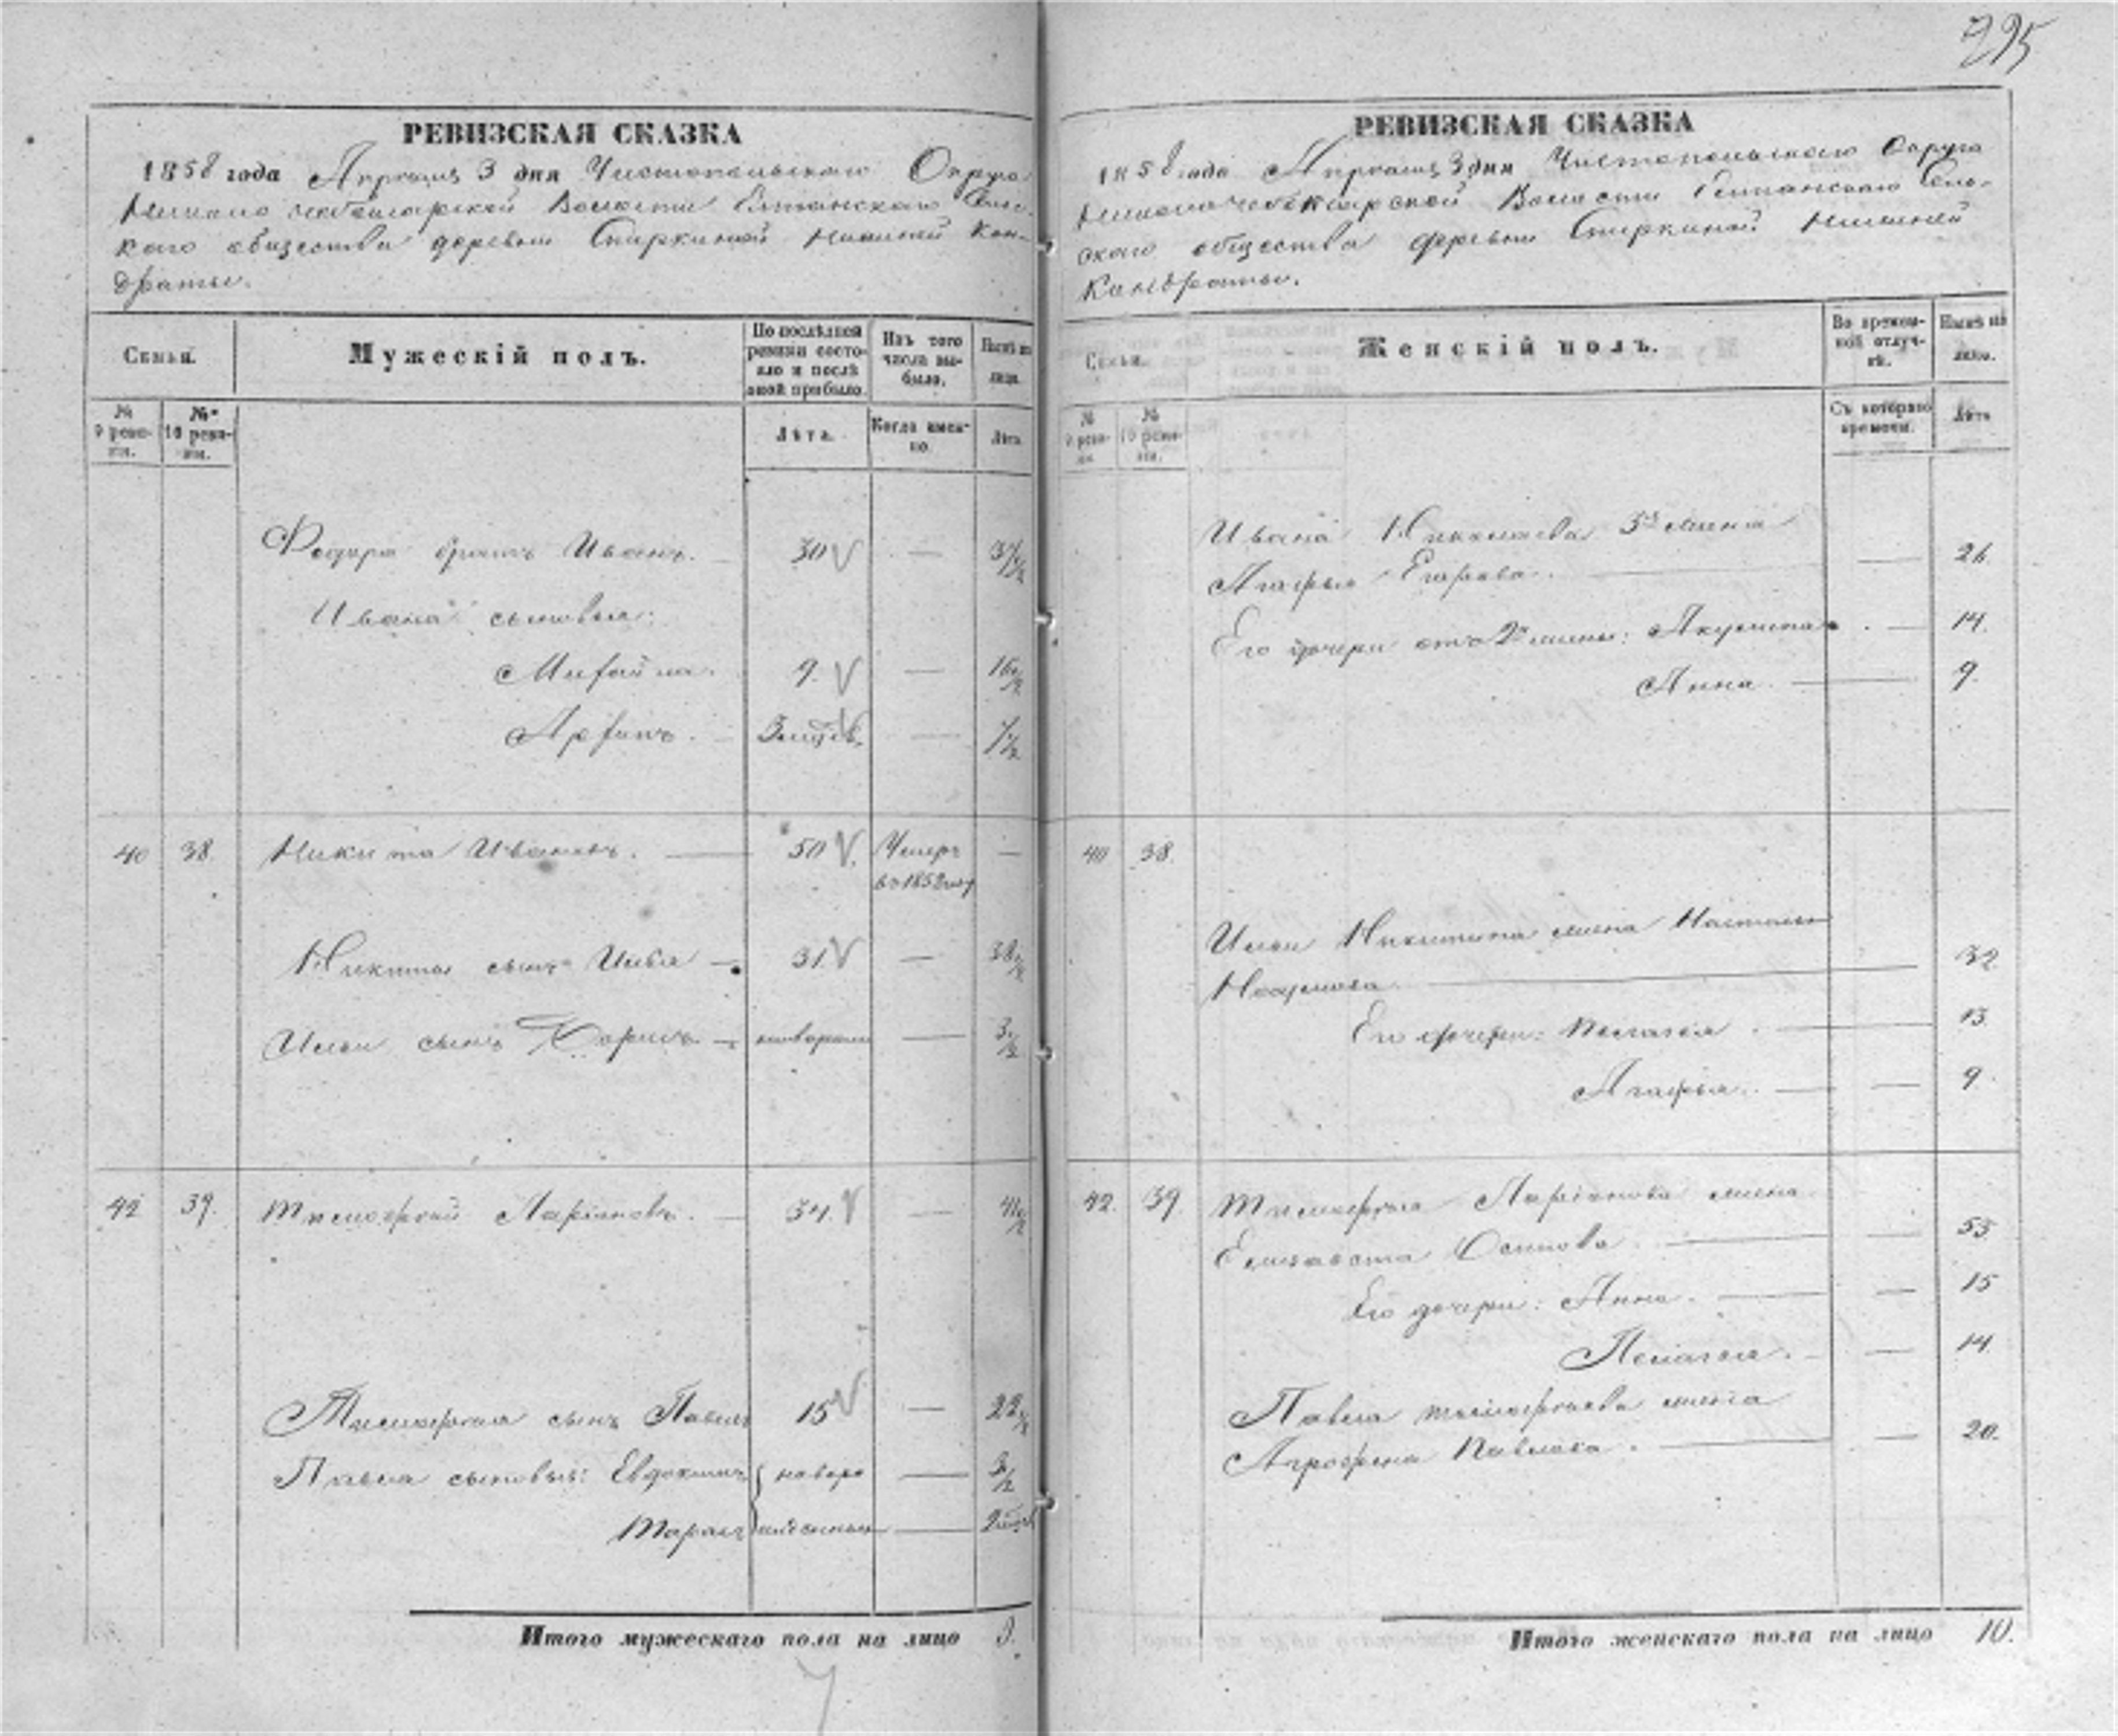 995
РЕВИЗСКАЯ СКАЗКА
1858 года Апрѣля 3 дня Чистопольскаго Округа
Волости Елтанскаго Сельс-
каго общества деревни Спиркиной Нижней Кон-
драты.
Семьи.
Мужескій полъ.
По послѣдней ревизіи состо- яло и послѣ оной прибыло.
Изъ того числа вы- было.
Нынѣ на лицо.
№ 9 реви- зіи.
№ 10 реви- зіи.
Лѣта.
Когда имен- но.
Лѣта
Федора братъ Иванъ. 30 — 37 1/2
Ивана сыновья:
Михайла. 9. — 16 1/2
Архипъ. — 7 1/2
40 38. Никита Ивановъ. — 50 Умеръ —
въ 1852 году
Никиты сынъ Илья — 31 — 38 1/2
Ильи сынъ — 3 1/2
42 39. Тимофей Ларіоновъ. — 34. — 41 1/2
Тимофея сынъ Павелъ 15 — 22 1/2
Павла сыновья: Евдокимъ новоро — 3 1/2
Тарасъ жденные —
Итого мужескаго пола на лицо 9.
РЕВИЗСКАЯ СКАЗКА
1858 года Апрѣля 3 дня Чистопольскаго Округа
Волости Елтанскаго Сель-
скаго общества деревни Спиркиной Нижней
Кондраты.
Семьи.
Женскій полъ.
Во времен- ной отлуч- кѣ.
Нынѣ на лицо.
№ 9 реви- зіи.
№ 10 реви- зіи.
Съ котораго времени.
Лѣта
Ивана 3я жена
Агафья Егорова. — 26
Его дочери отъ 2й жены: Акулина — 14.
Анна. — 9.
40 38.
Ильи Никитина жена Наталья
Наумова — 32
Его дочери: Пелагея. — 13
Агафья. — 9.
42. 39. Тимофея Ларіонова жена
Елизавета Осипова — 55.
Его дочери: Анна. — 15
Пелагея. — 14.
Павла Тимофеева жена
Агрофена Павлова. — 20.
Итого женскаго пола на лицо 10.